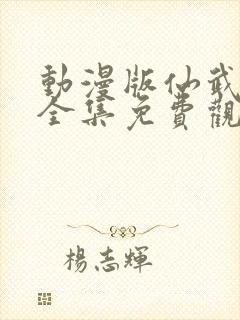 動漫版仙武
全集免費觀
楊志輝